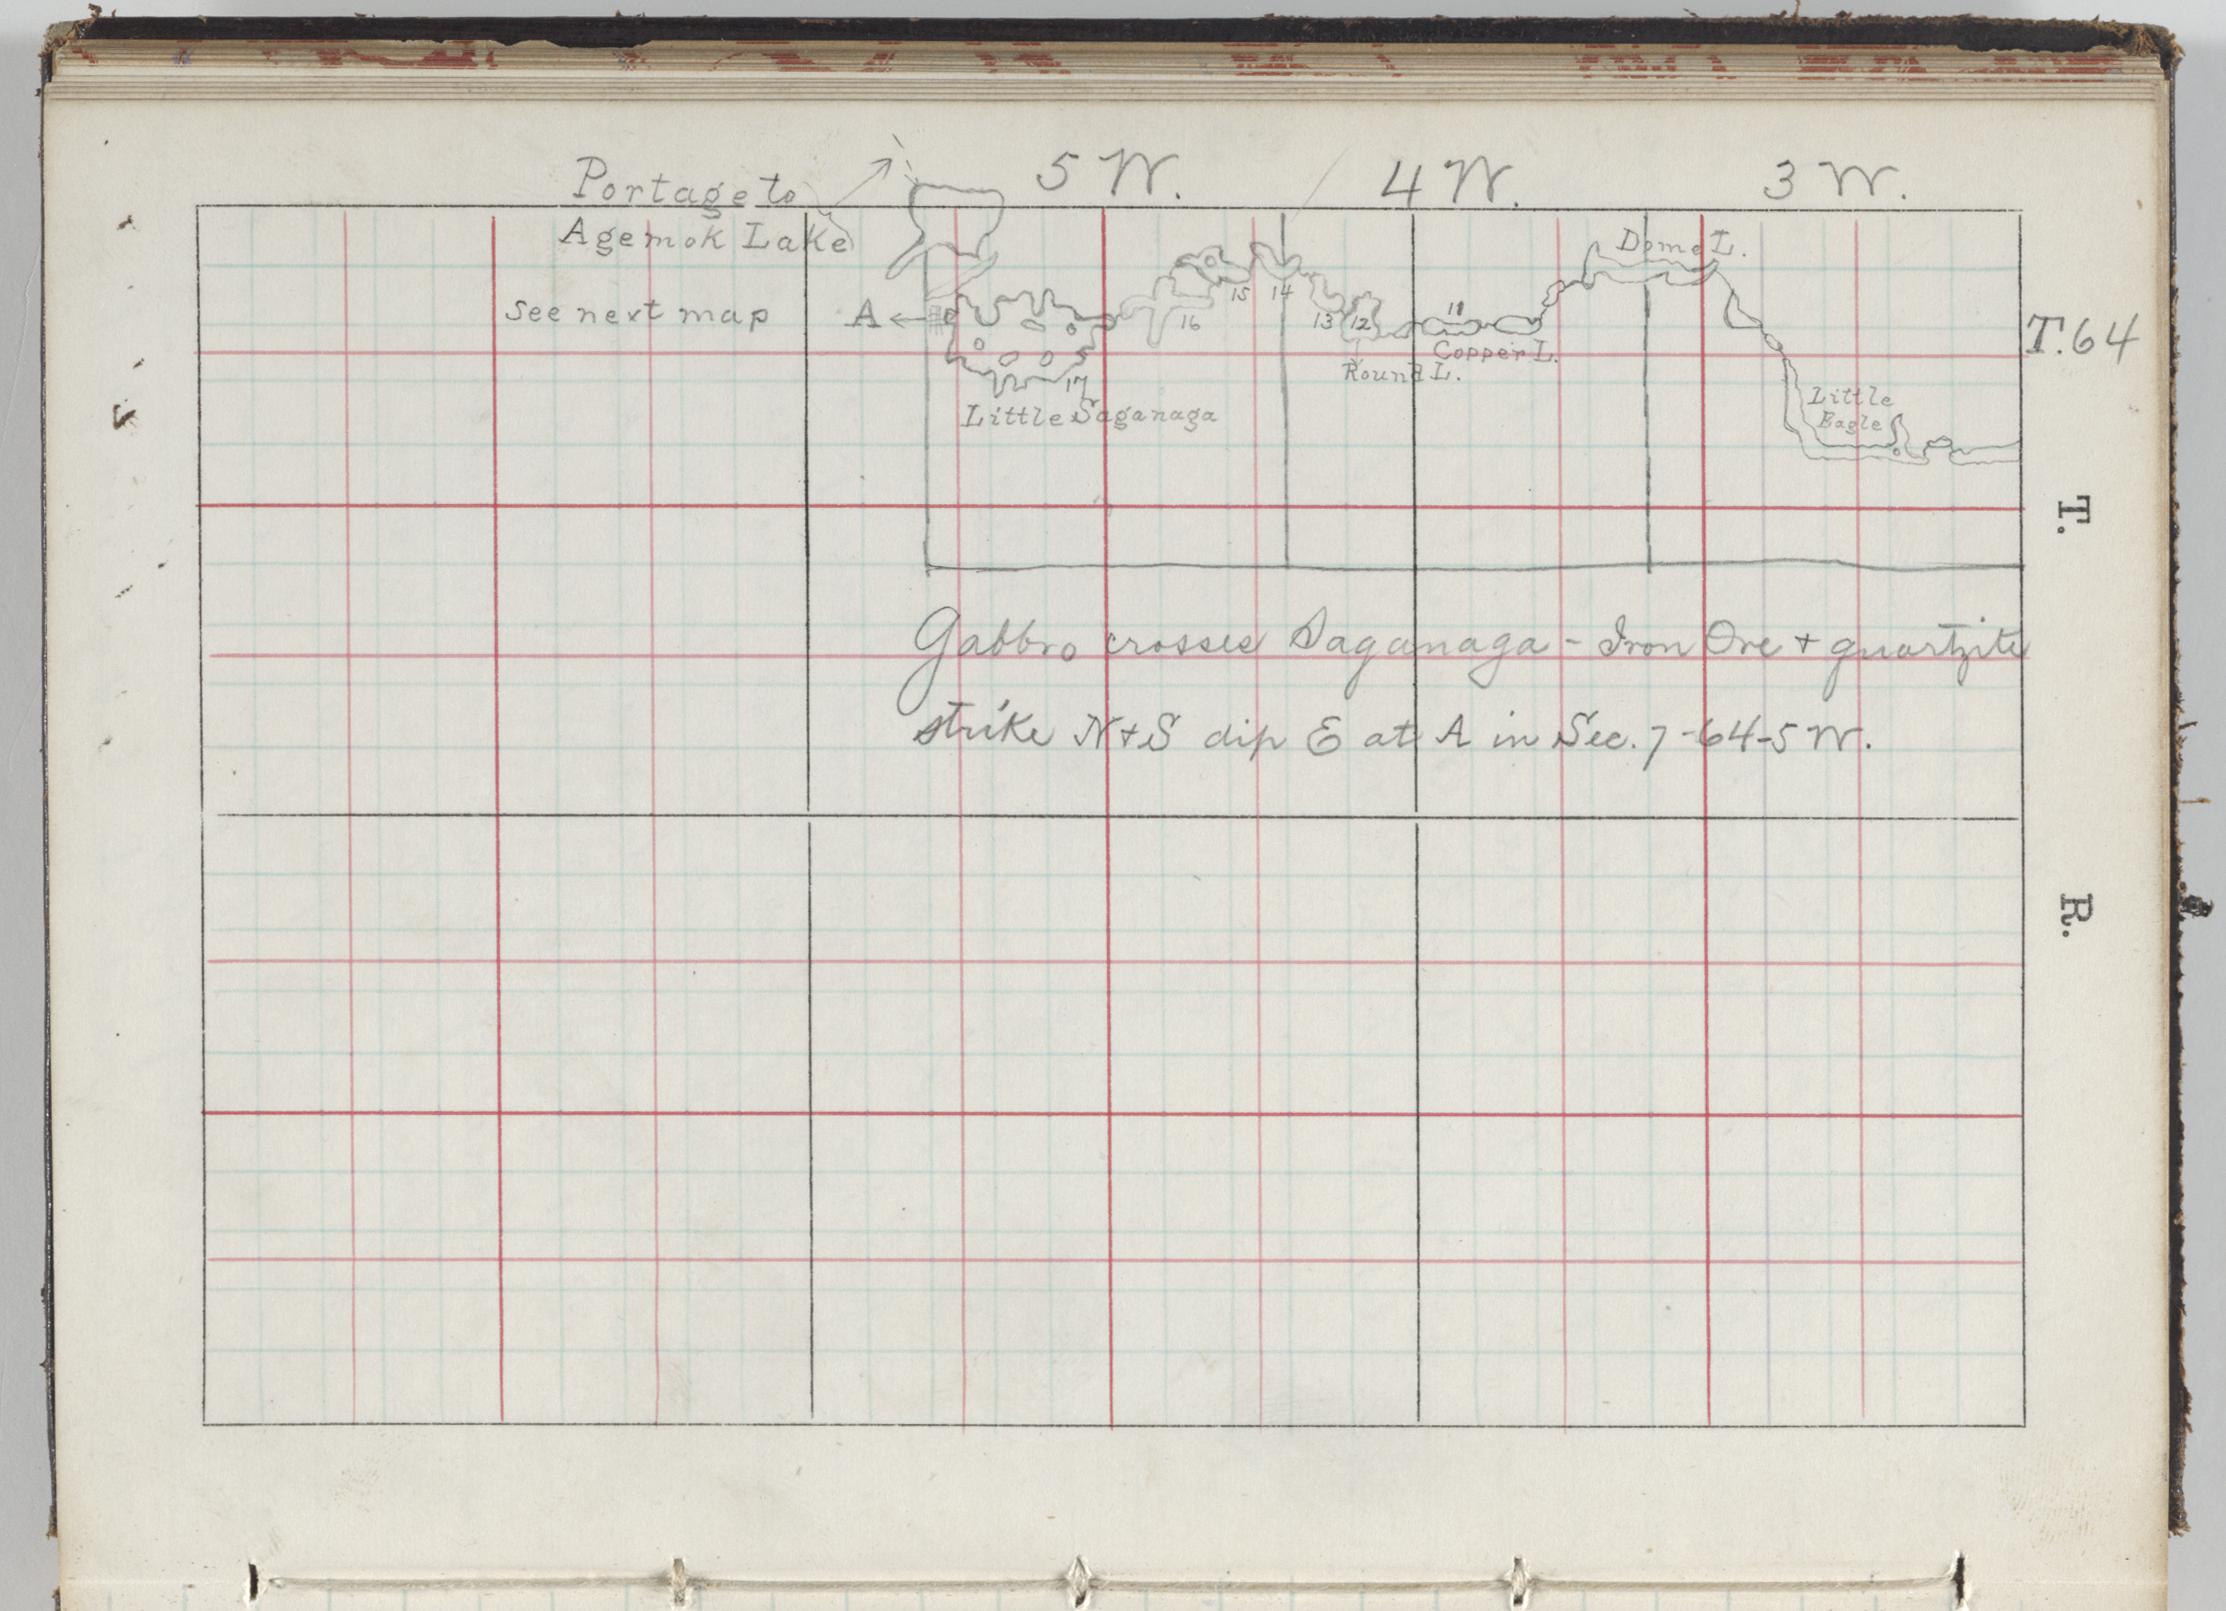 5 W. 4 W. 3 W.
Portage to
Agemok Lake
see next map
A
Dome L.
T. 64
15 14
16 13 12 11
Copper L.
Round L.
17
Little Saganaga
Little
Eagle
T.
Gabbro crosses Saganaga - Iron Ore + quartzite
strike N + S dip E at A in Sec. 7-64-5 W.
R.